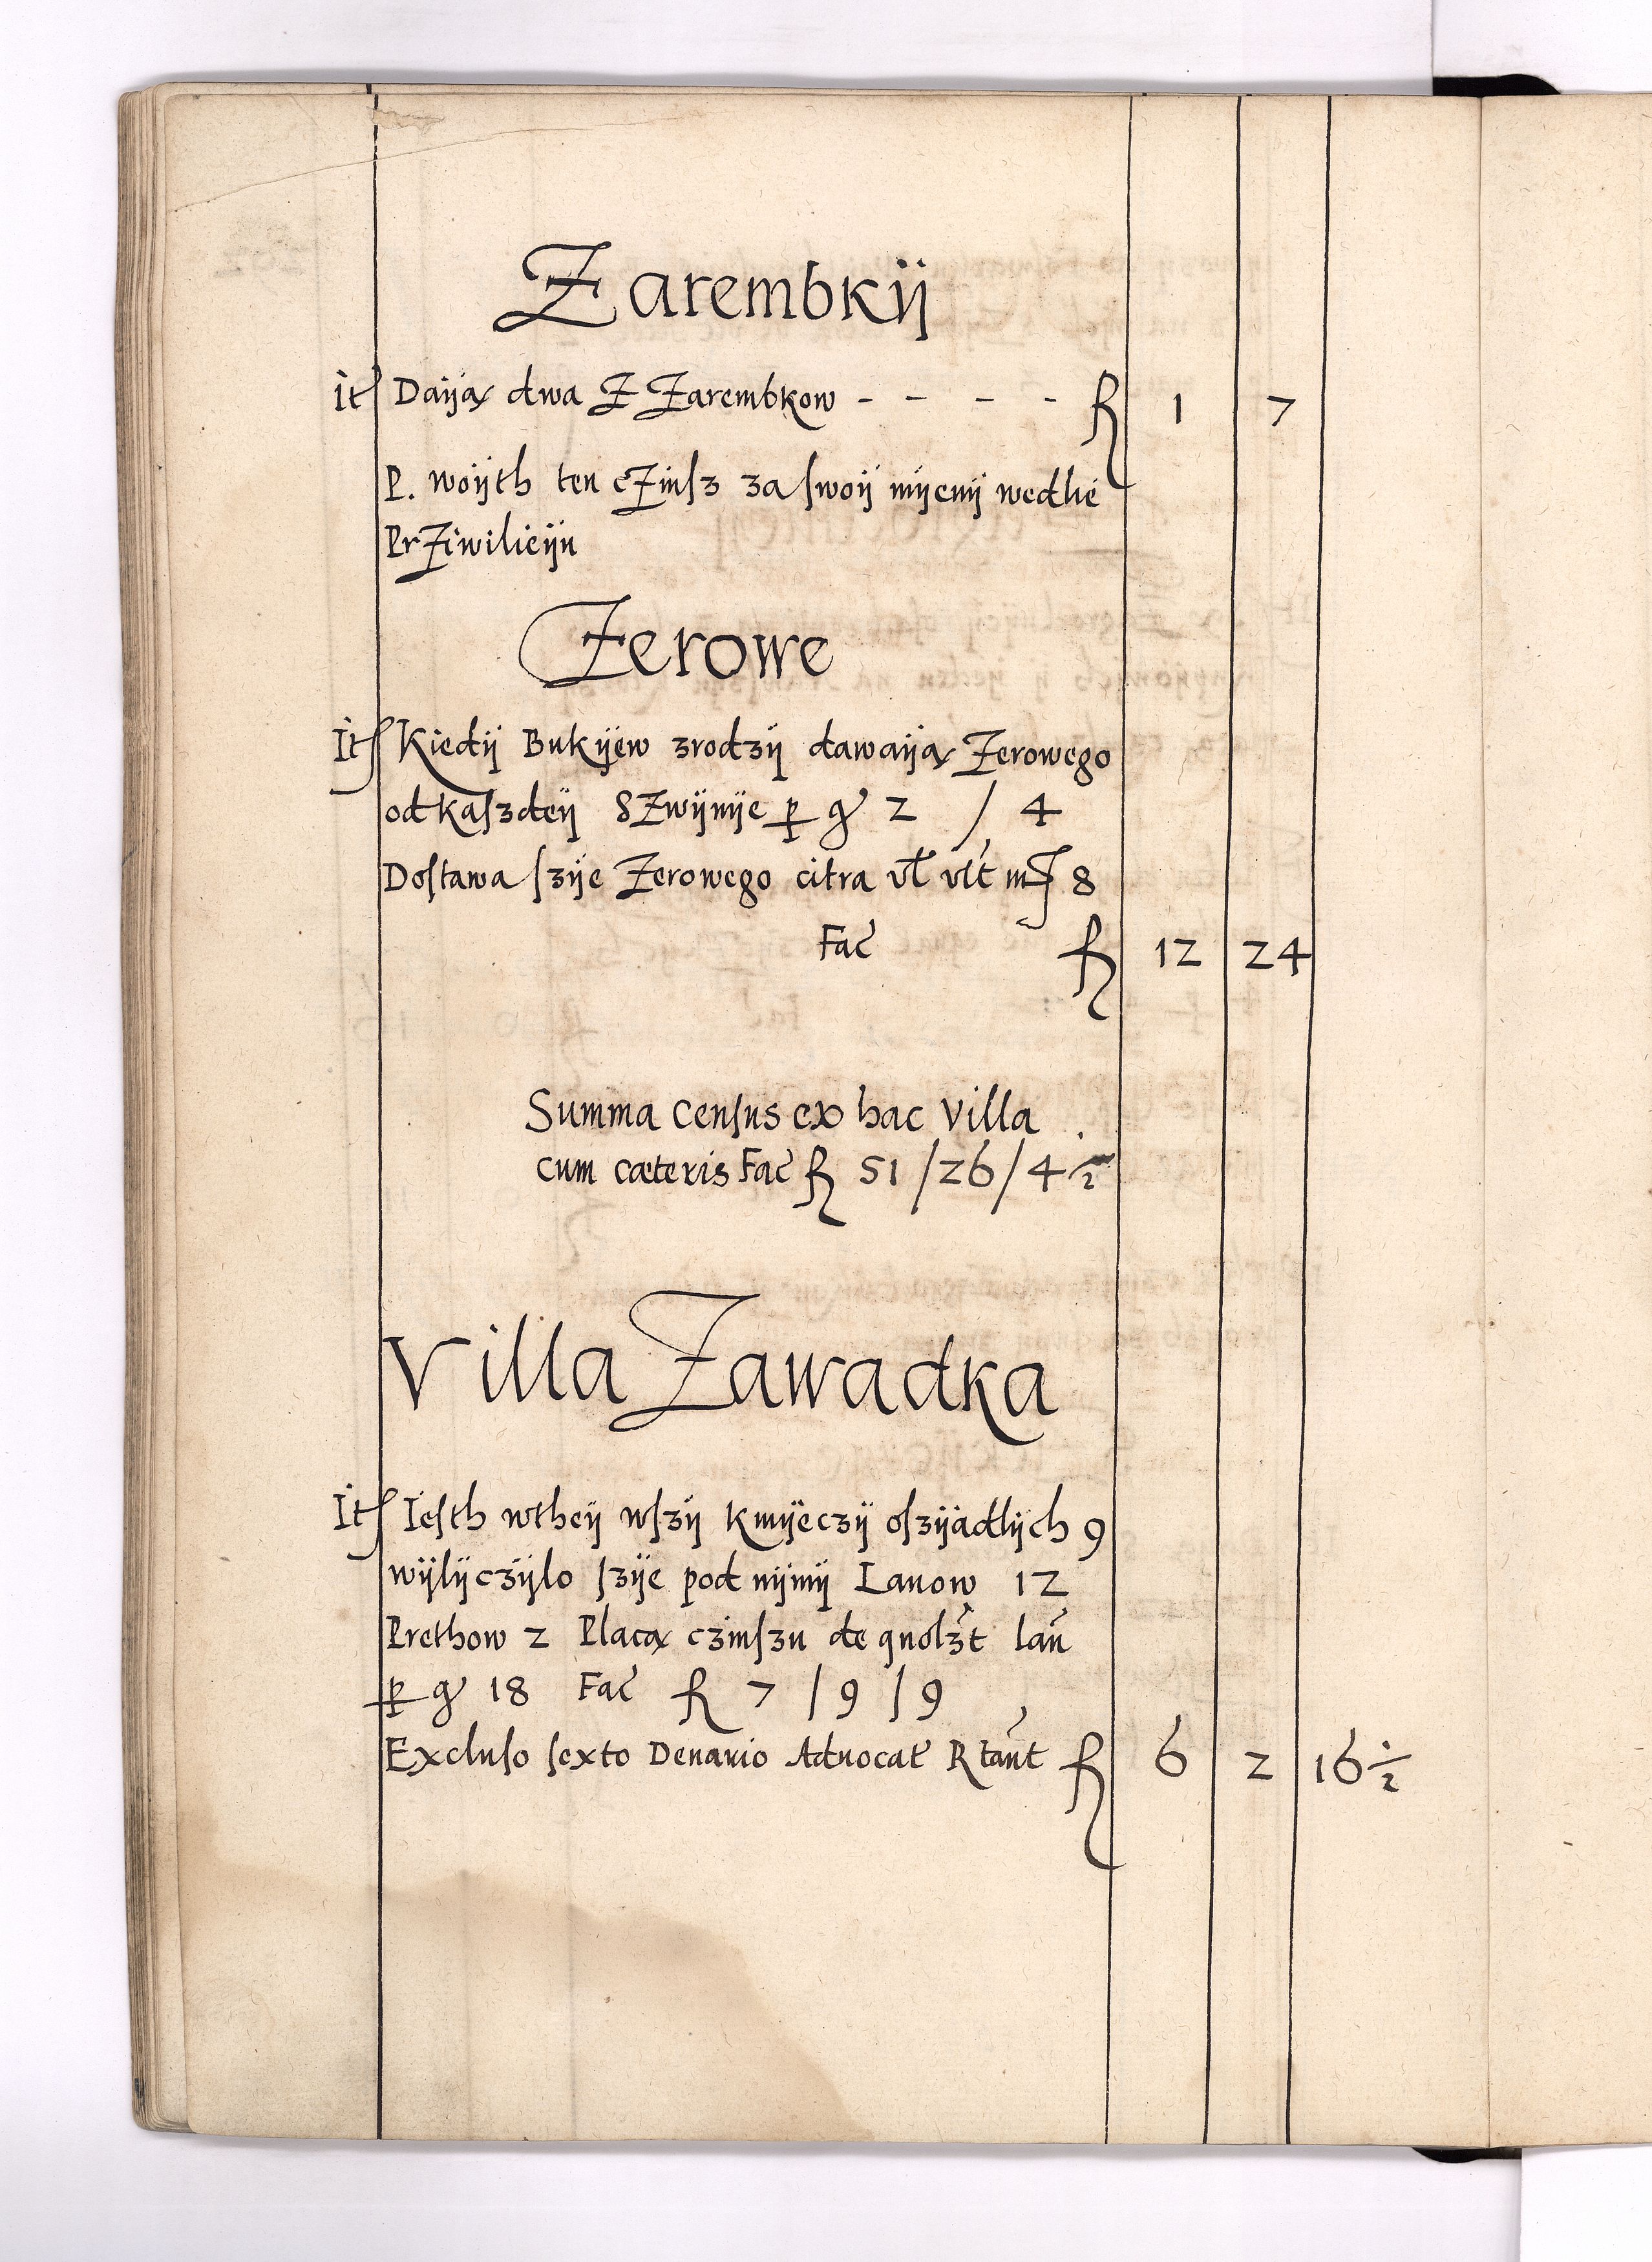 Zarembkÿ
It Daÿą dwa Z Zarembkow - - - - fl 1 7
P. woÿth ten cZinſz za ſwoÿ mÿenÿ wedlie
PrZiwilieÿu
Zerowe
It Kiedÿ Bukÿew zrodzÿ dawaÿą Zerowego
od kaſzdeÿ SZwÿnÿe p gͬ 2 / 4
Doſtawa ſzÿe Zerowego citra vl vlt mͬ 8
Fac fl 12 24
Summa Cenſus ex hac Villa
cum cæteris Fac fl 51 / 26 / 4 ½
Villa Zawadka
It Ieſth wtheÿ wſzÿ Kmÿeczÿ oſzÿadlÿch 9
wÿlÿczÿlo ſzÿe pod nÿmÿ Lanow 12
Prethow 2 Placą czinſzu de quolzt lan
p gͬ 18 Fac fl 7 / 9 / 9
Excluſo ſexto Denario Aduocat Rtant fl 6 2 16 ½